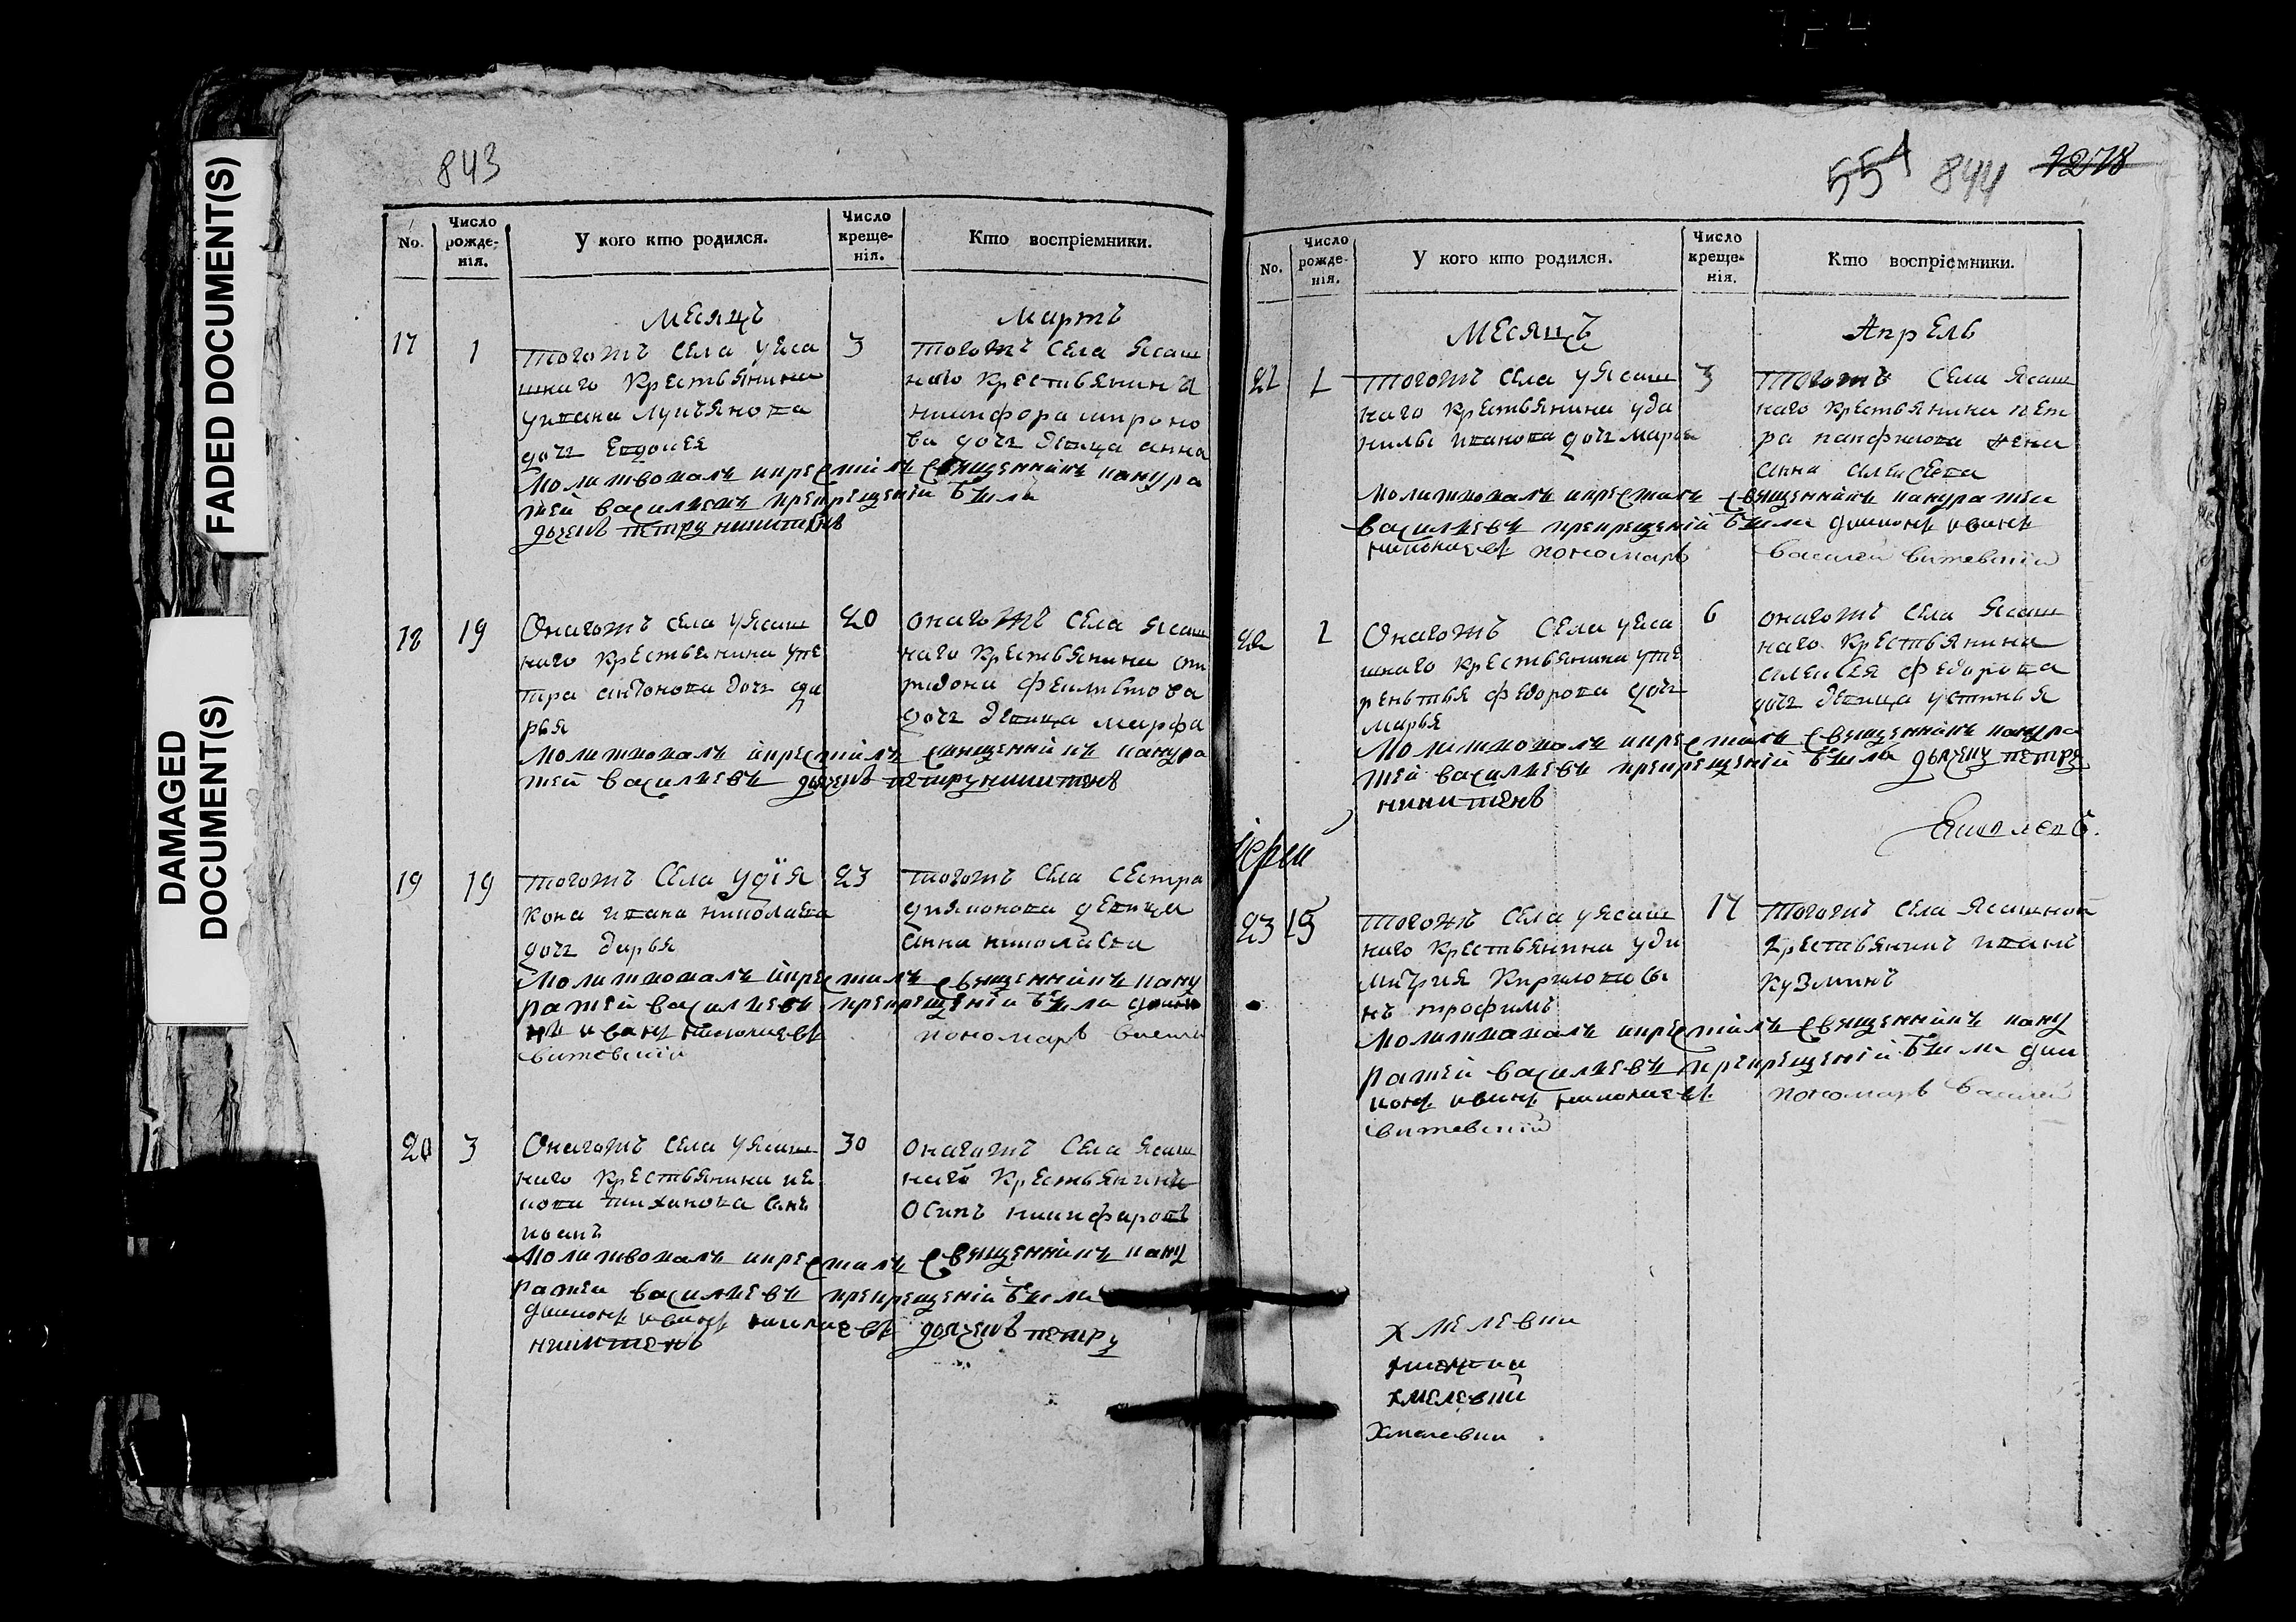 FADED DOCUMENT(S)
DAMAGED
DOCUMENT(S)
843
No.
Число рожде-нія.
У кого кто родился.
Число креще-нія.
Кто воспріемники.
Месяцъ Мартъ
17 1 3
тогожъ села уяса
шнаго крестьянина
Лукьянова
дочь Евдокея
тогожъ села ясаш
наго крестьянина
никифора мироно
ва дочь девица анна
Молитвовалъ икрестилъ священникъ кандра
тей василиевъ прикрещении были
дьячекъ петръ никитинъ
18 19 20
Онагожъ села уясаш
наго крестьянинаупе
тра антонова дочь да
рья
онагожъ села ясаш
наго крестьянина спи
ридона
дочь девица марфа
Молитвовалъ икрестилъ священникъ кандра
тей василиевъ дьячекъ петръ никитинъ
19 19 23
тогожъ села удїя
кона ивана николаева
дочь дарья
тогожъ села сестра
дияконова девица
анна николаева
Молитвовалъ икрестилъ священникъ канд
ратей василиевъ прикрещении были диако
нъ иванъ николаевъ пономарь васили
витевский
20 3 30
Онагожъ села уясаш
наго крестьянина
тихонова сынъ
иванъ
онагожъ села ясаш
наго крестьянинъ
Осипъ никифоровъ
Молитвовалъ икрестилъ священникъ канд
ратеи василиевъ прикрещении были
диаконъ иванъ николаевъ дьячекъ петръ
никитинъ
551 844 1278
No.
Число рожде-нія.
У кого кто родился.
Число креще-нія.
Кто воспріемники.
Месяцъ Апрель
21 1 3
тогожъ села уясаш
наго крестьянина уда
нилы иванова дочь марья
тогожъ села ясаш
наго крестьянина пет
ра панфилова жена
анна алексеева
Молитвовалъ икрестилъ священникъ кандратеи
василиевъ прикрещении были диаконъ иванъ
николаевъ пономарь василей витевский
22 2 6
Онагожъ села уяса
шнаго крестьянина уте
рентья федорова дочь
марья
онагожъ села ясаш
наго крестьянина
алексея федорова
дочь девица устинья
Молитвовалъ икрестилъ священникъ кандра
тей василиевъ прикрещении были дьячекъ петръ
никитинъ
іерей
Яковлевъ.
23 15 17
тогожъ села уясаш
наго крестьянина уди
митрия Кирилова сы
нъ трофимъ
тогожъ села ясашной
крестьянинъ иванъ
кузминъ
Молитвовалъ икрестилъ священникъ канд
ратей василиевъ прикрещении были диа
конъ иванъ николаевъ пономарь василей
витевский
хмелевки
хмелевки
Хмелевки